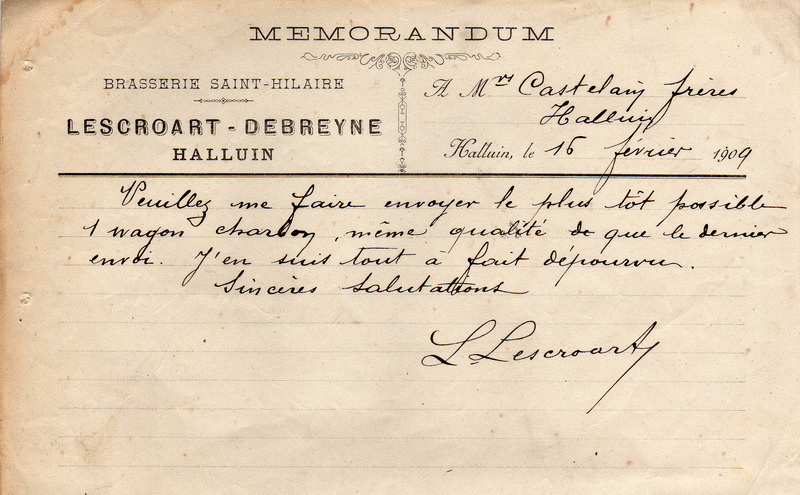 MEMORANDUM
BRASSERIE SAINT-HILAIRE
LESCROART - DEBREYNE
HALLUIN
A Mrs Castelain frères
Halluin
Halluin, le 16 février 1909
Veuillez me faire envoyer le plus tôt possible
1 wagon charbon, même qualité de que le dernier
envoi. J'en suis tout à fait dépourvu.
Sincères salutations
L. Lescroart